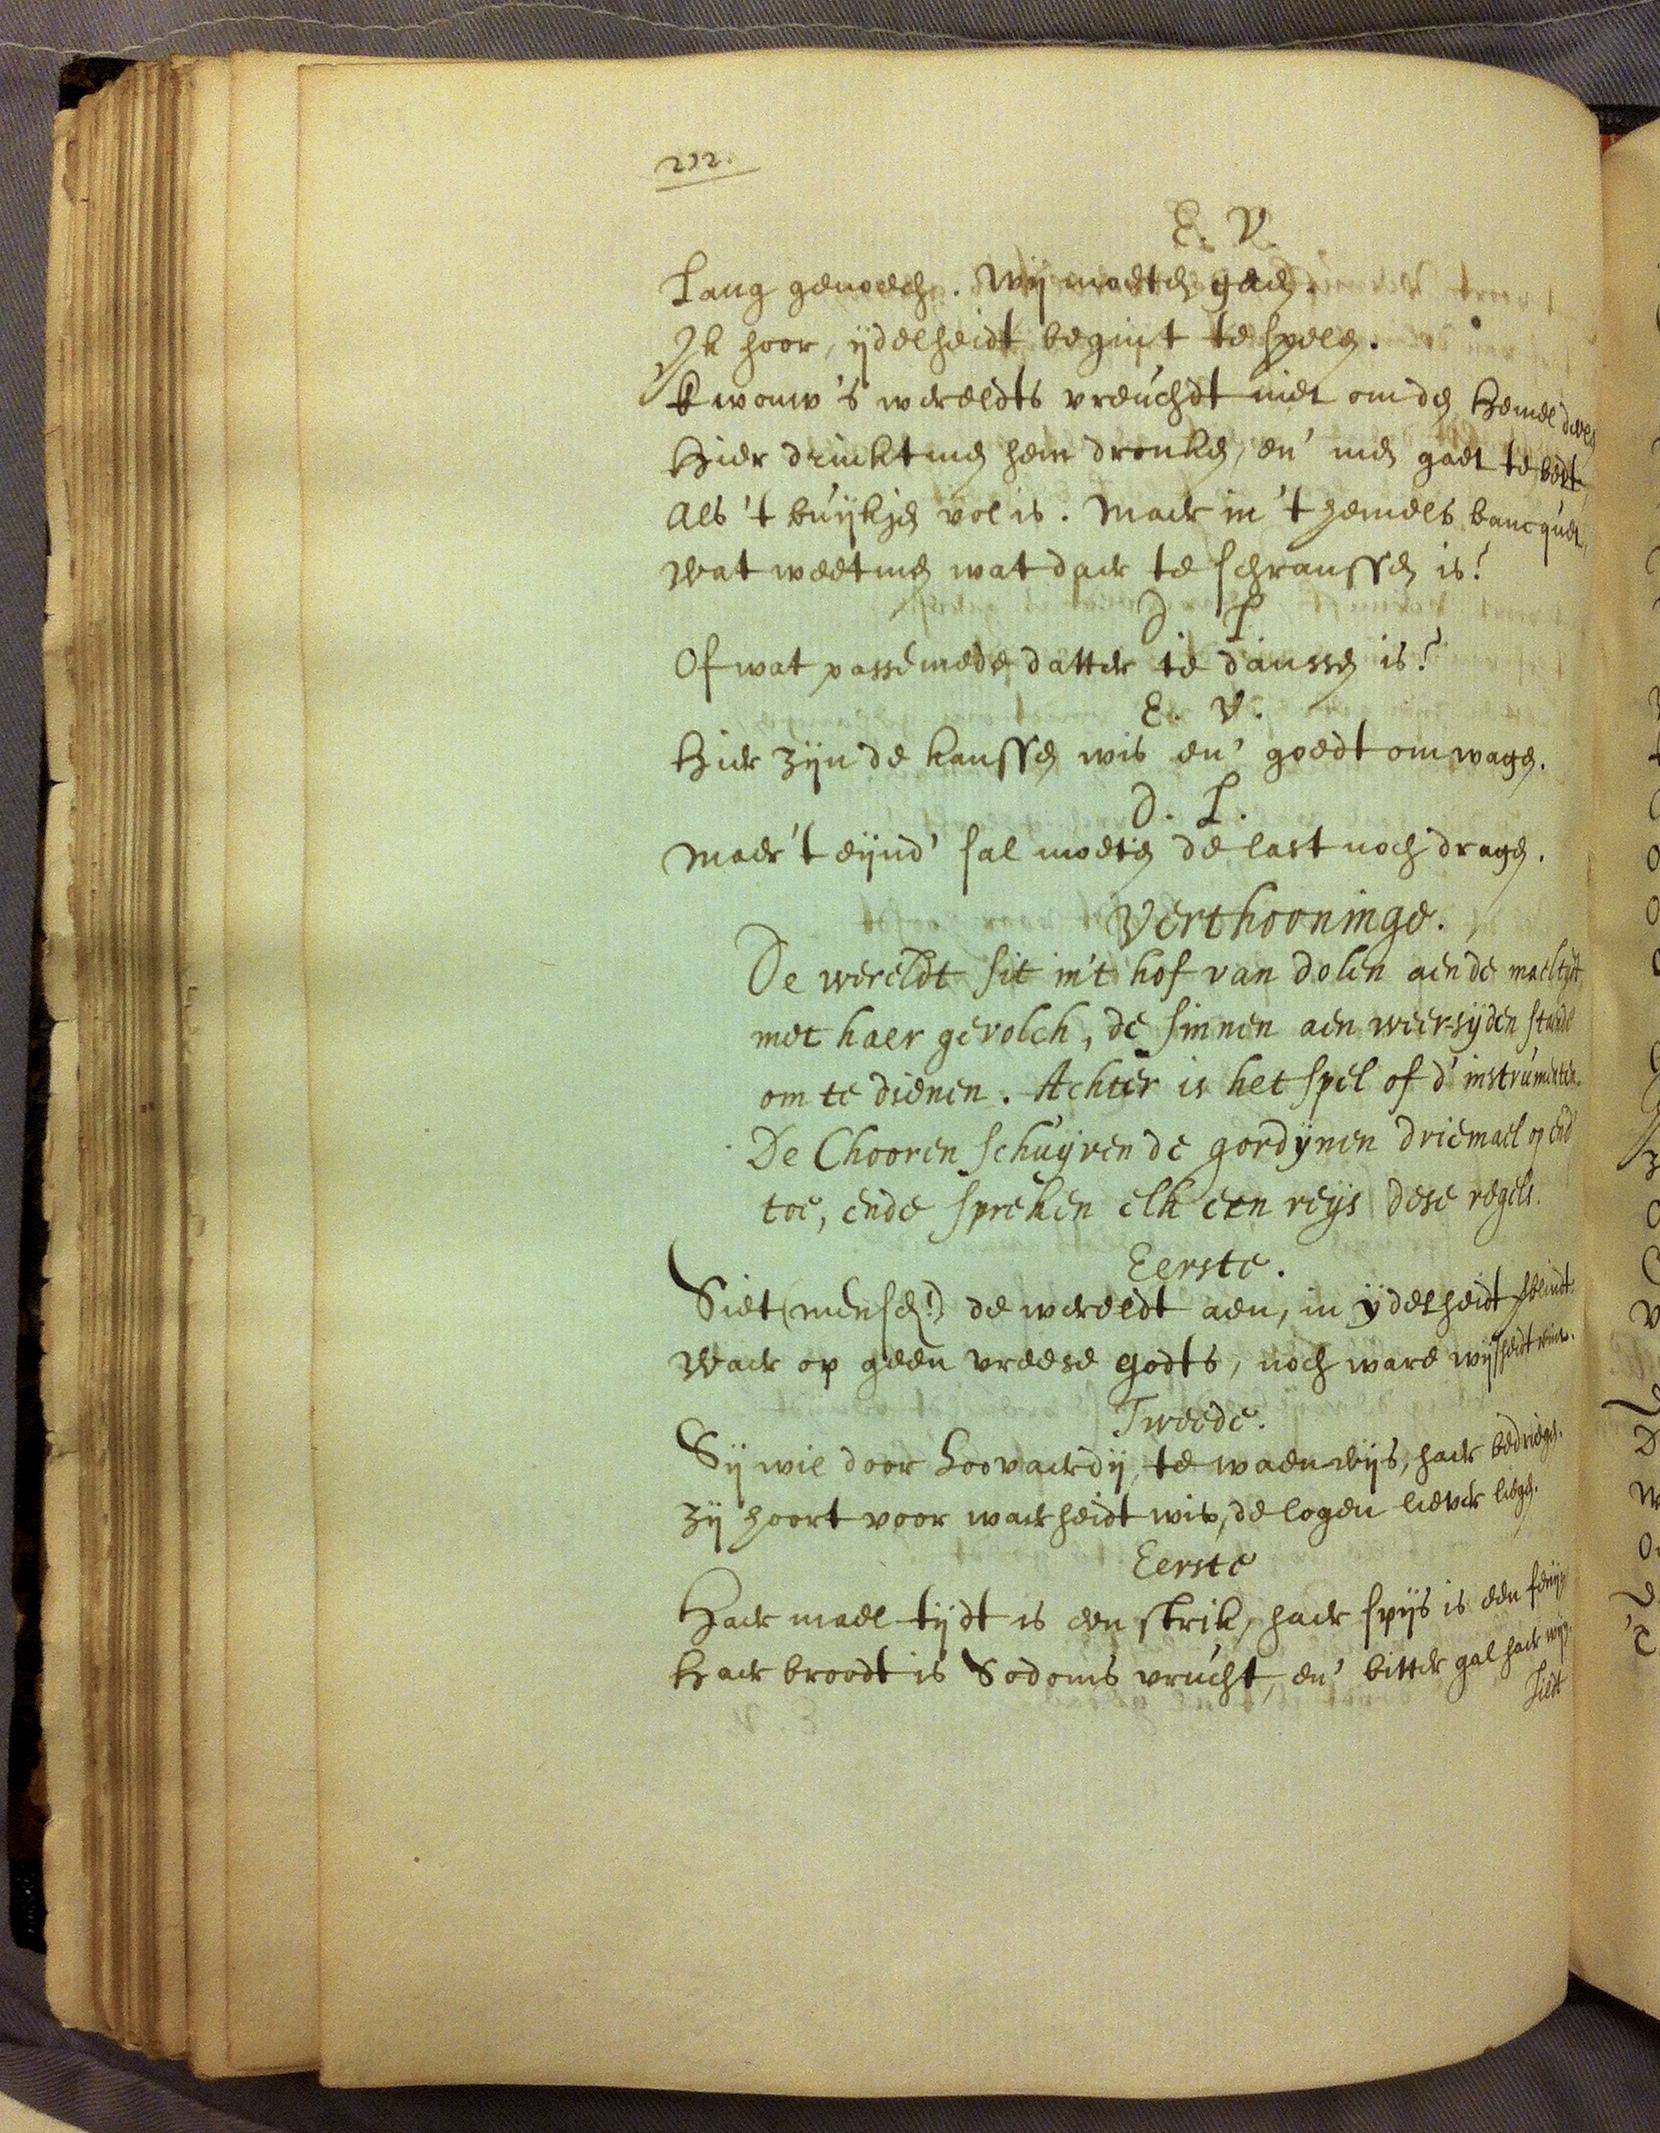 212.
E. V.
Lang genoech. Wij moeten gaen.
Ik hoor, ijdelheidt begint te spelen.
'k wouw 's wereldts vreuchdt niet om den Hemel
Hier drinkt men hem dronken, en' men gaet te bedt,
Als 't buijkjen vol is. Maer in 't hemels bancquet,
Wat weet men wat daer te schranssen is?
D. L.
Of wat passemede datter te danssen is?
E. V.
Hier zijn de kanssen wis en' goedt om wagen.
D. L.
Maer 't eijnd' sal moeten de last noch dragen.
Verthooninge.
De wereldt sit in't hof van dolen aen de maeltijt,
met haer gevolch, de sinnen aen weer-sijden
om te dienen. Achter is het spel of d' instrumenten.
De Chooren schuijven de gordijnen driemael op end'
toe, ende spreken elk een reijs dese regels.
Eerste.
Siet (menschen!) de wereldt aen, in ijdelheidt
Waer op geen vreese Godts, noch ware wijsheidt
Tweede.
Sij wil door hoovaerdij, te waenwijs, haer bedriegen.
Zij hoort voor waerheidt wis, de logen liever liegen.
Eerste
Haer maeltijdt is een strik, haer spijs is een fenijn
Haer broodt is Sodoms vrucht, en' bitter gal haer wijn.
Siedt